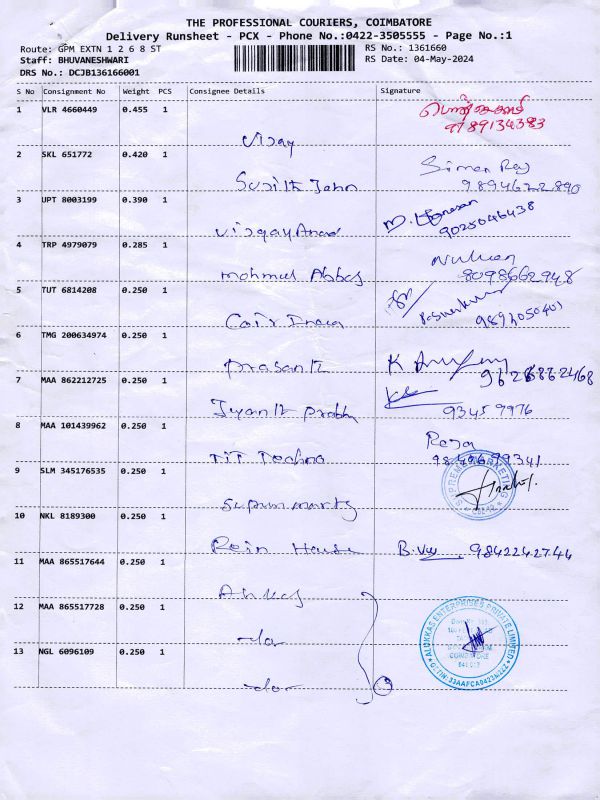 THE PROFESSIONAL COURIERS, COIMBATORE
Delivery Runsheet - PCX - Phone No.:0422-3505555 - Page No.:1
Route: GPM EXTN 1 2 6 8 ST RS No.: 1361660
Staff: BHUVANESHWARI RS Date: 04-May-2024
DRS No.: DCJB136166001
S No Consignment No Weight PCS Consignee Details Signature
1 VLR 4660449 0.455 1
Vijay 9789134383
2 SKL 651772 0.420 1 Simon Raj
Susith John 9894622890
3 UPT 8003199 0.390 1
Vijay Anand 9025046438
4 TRP 4979079 0.285 1
Mohmmed Abbas 8098662948
5 TUT 6814208 0.250 1
Coir India 9892050401
6 TMG 200634974 0.250 1
Prasanth
7 MAA 862212725 0.250 1
Jyanth Prabhu 93459976
8 MAA 101439962 0.250 1 Raja
TIT Techno
9 SLM 345176535 0.250 1 SUPREME MARKETING
CBE-12
10 NKL 8189300 0.250 1
Rein House 9842242744
11 MAA 865517644 0.250 1
12 MAA 865517728 0.250 1 ALUKKAS ENTERPRISES PRIVATE LIMITED
-do-
13 NGL 6096109 0.250 1 COIMBATORE
-do- 3